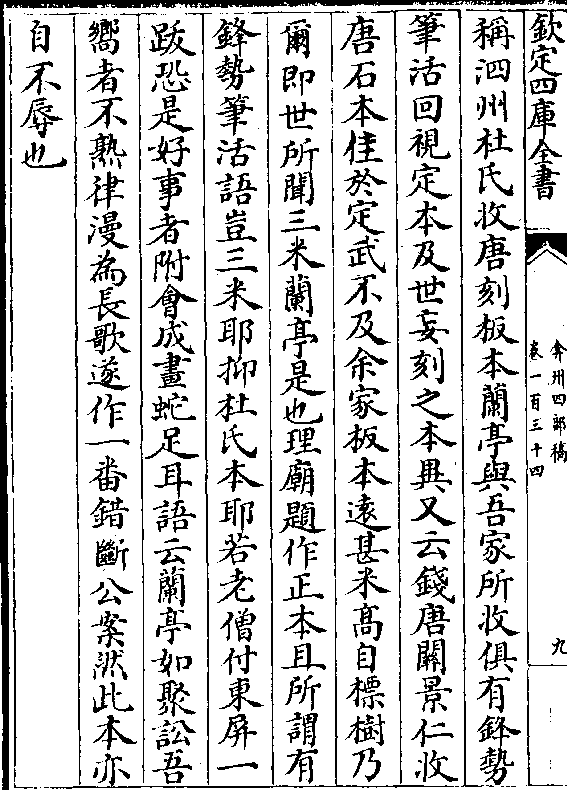 欽定四庫全書
弇州四部稿
卷一百三十四
九
稱泗州杜氏收唐刻板本蘭亭與吾家所收俱有鋒勢
筆活回視定本及世妄刻之本異又云錢唐關景仁收
唐石本佳於定武不及余家板本遠甚米高自標樹乃
爾即世所聞三米蘭亭是也理廟題作正本且所謂有
鋒勢筆活語豈三米耶抑杜氏本耶若老僧付東屏一
跋恐是好事者附會成畫蛇足耳語云蘭亭如聚訟吾
嚮者不熟律漫為長歌遂作一番錯斷公案然此本亦
自不辱也